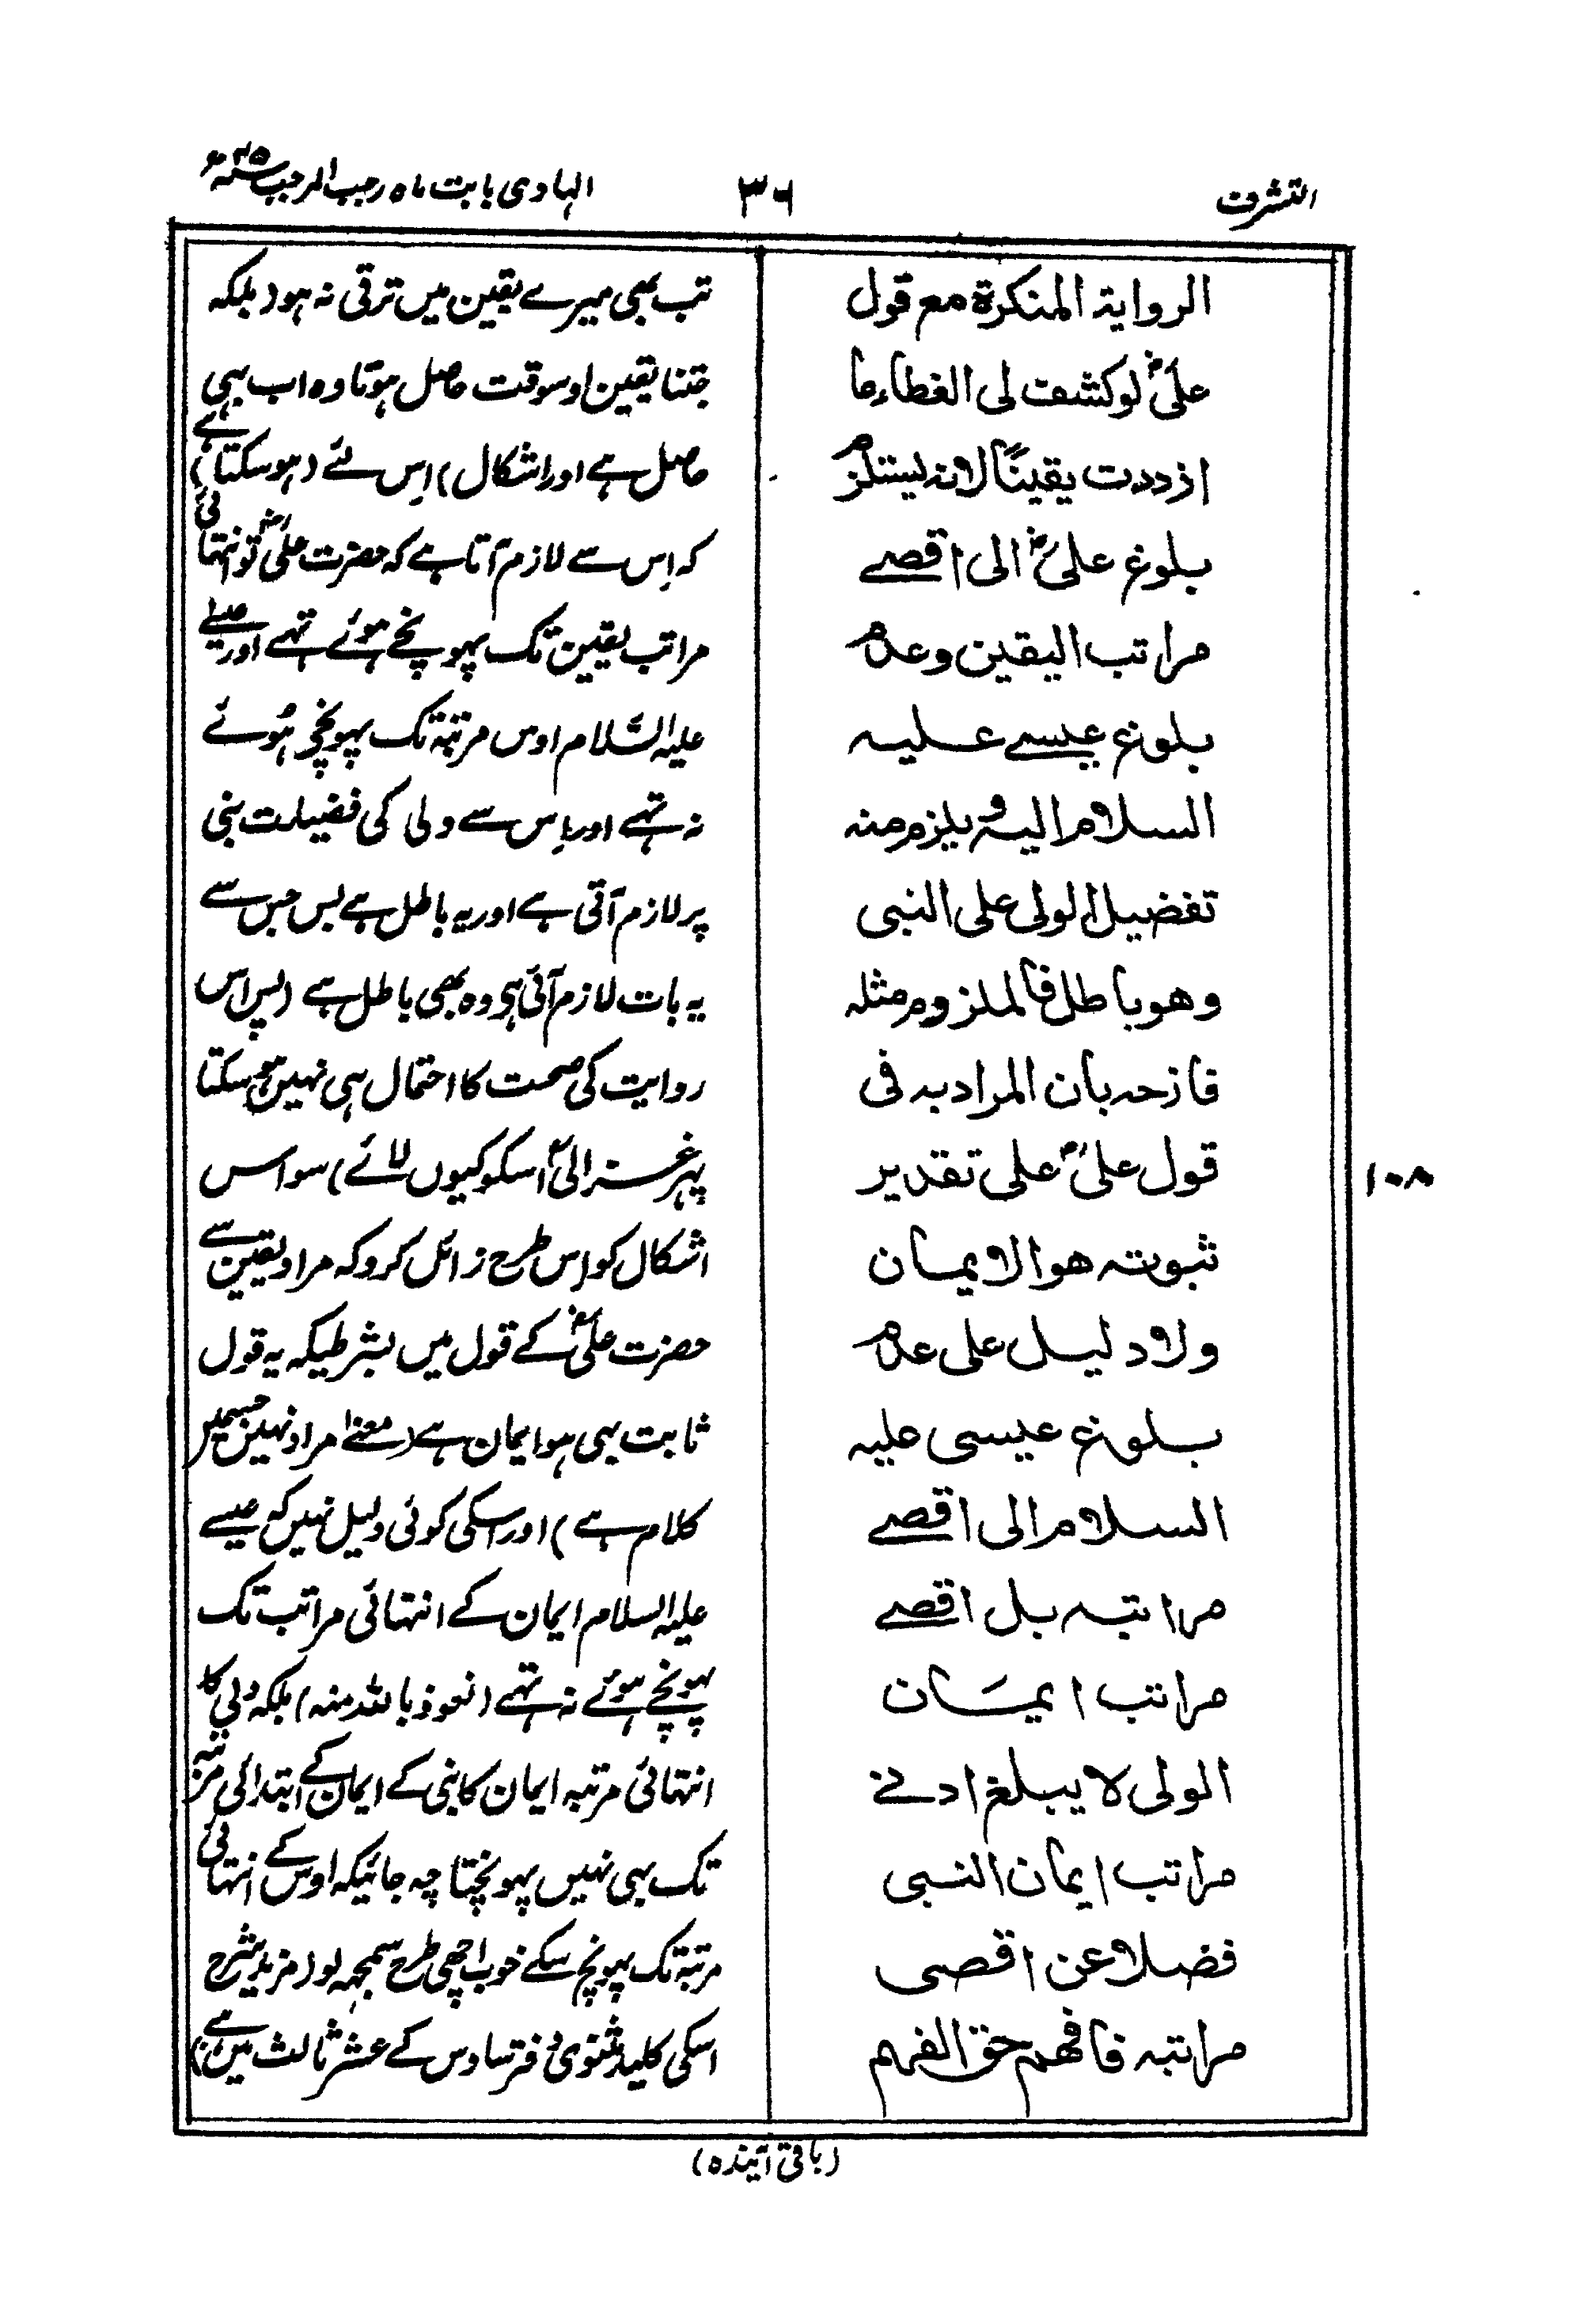 التشرف
۳۶
الہادی بابت ماہ رجب المرجب سنہ ۴۵ھ
الرواية المنكرة مع قول
علیؓ لو كشف لی الغطاء ما
ازددت يقينًا لانه يستلزم
بلوغ علیؓ الی اقصے
مراتب اليقين وعدم
بلوغ عيسے عليه
السلام اليه ويلزم منه
تفضيل الولی علی النبی
وهو باطل فالملزوم مثله
فازحه بان المراد به فی
قول علیؓ علی تقدير
ثبوته هو الايمان
ولا دليل علی عدم
بلوغ عيسی عليه
السلام الی اقصے
مراتبه بل اقصے
مراتب ايمان
الولی لا يبلغ ادنے
مراتب ايمان النبی
فضلا عن اقصی
مراتبه فافهم حق الفهم
تب بھی میرے یقین میں ترقی نہ ہو (بلکہ
جتنا یقین اوسوقت حاصل ہوتا وہ اب بہی
حاصل ہے اور اشکال) اِس لئے (ہو سکتا ہے)
کہ اِس سے لازم آتا ہے کہ حضرت علیؓ تو انتہائی
مراتب یقین تک پہونچے ہوئے تہے اور عیسے
علیہ السّلام اوس مرتبہ تک پہونچے ہُوئے
نہ تہے اور اِس سے ولی کی فضیلت نبی
پر لازم آتی ہے اور یہ باطل ہے بس جس سے
یہ بات لازم آئی ہی وہ بھی باطل ہے (پس اس
روایت کی صحت کا احتمال ہی نہیں ہو سکتا
پہر غزالیؒ اسکو کیوں لائے) سو اس
اشکال کو اِس طرح زائل کرو کہ مراد یقین سے
حضرت علیؓ کے قول میں بشرطیکہ یہ قول
ثابت بہی ہو ایمان ہے (وہ معنے مراد نہیں جسمیں
کلام ہے) اور اسکی کوئی دلیل نہیں کہ عیسے
علیہ السلام ایمان کے انتہائی مراتب تک
پہونچے ہوئے نہ تہے (نعوذ باللہ منہ) بلکہ ولی کا
انتہائی مرتبہ ایمان کا نبی کے ایمان کے ابتدائی مرتبہ
تک بہی نہیں پہونچتا چہ جائیکہ اوس کے انتہائی
مرتبہ تک پہونچ سکے خوب اچھی طرح سمجہہ لو (مزید شرح
اسکی کلید مثنوی دفتر سادس کے عشر ثالث میں ہے)
۱۰۸
(باقی آیندہ)